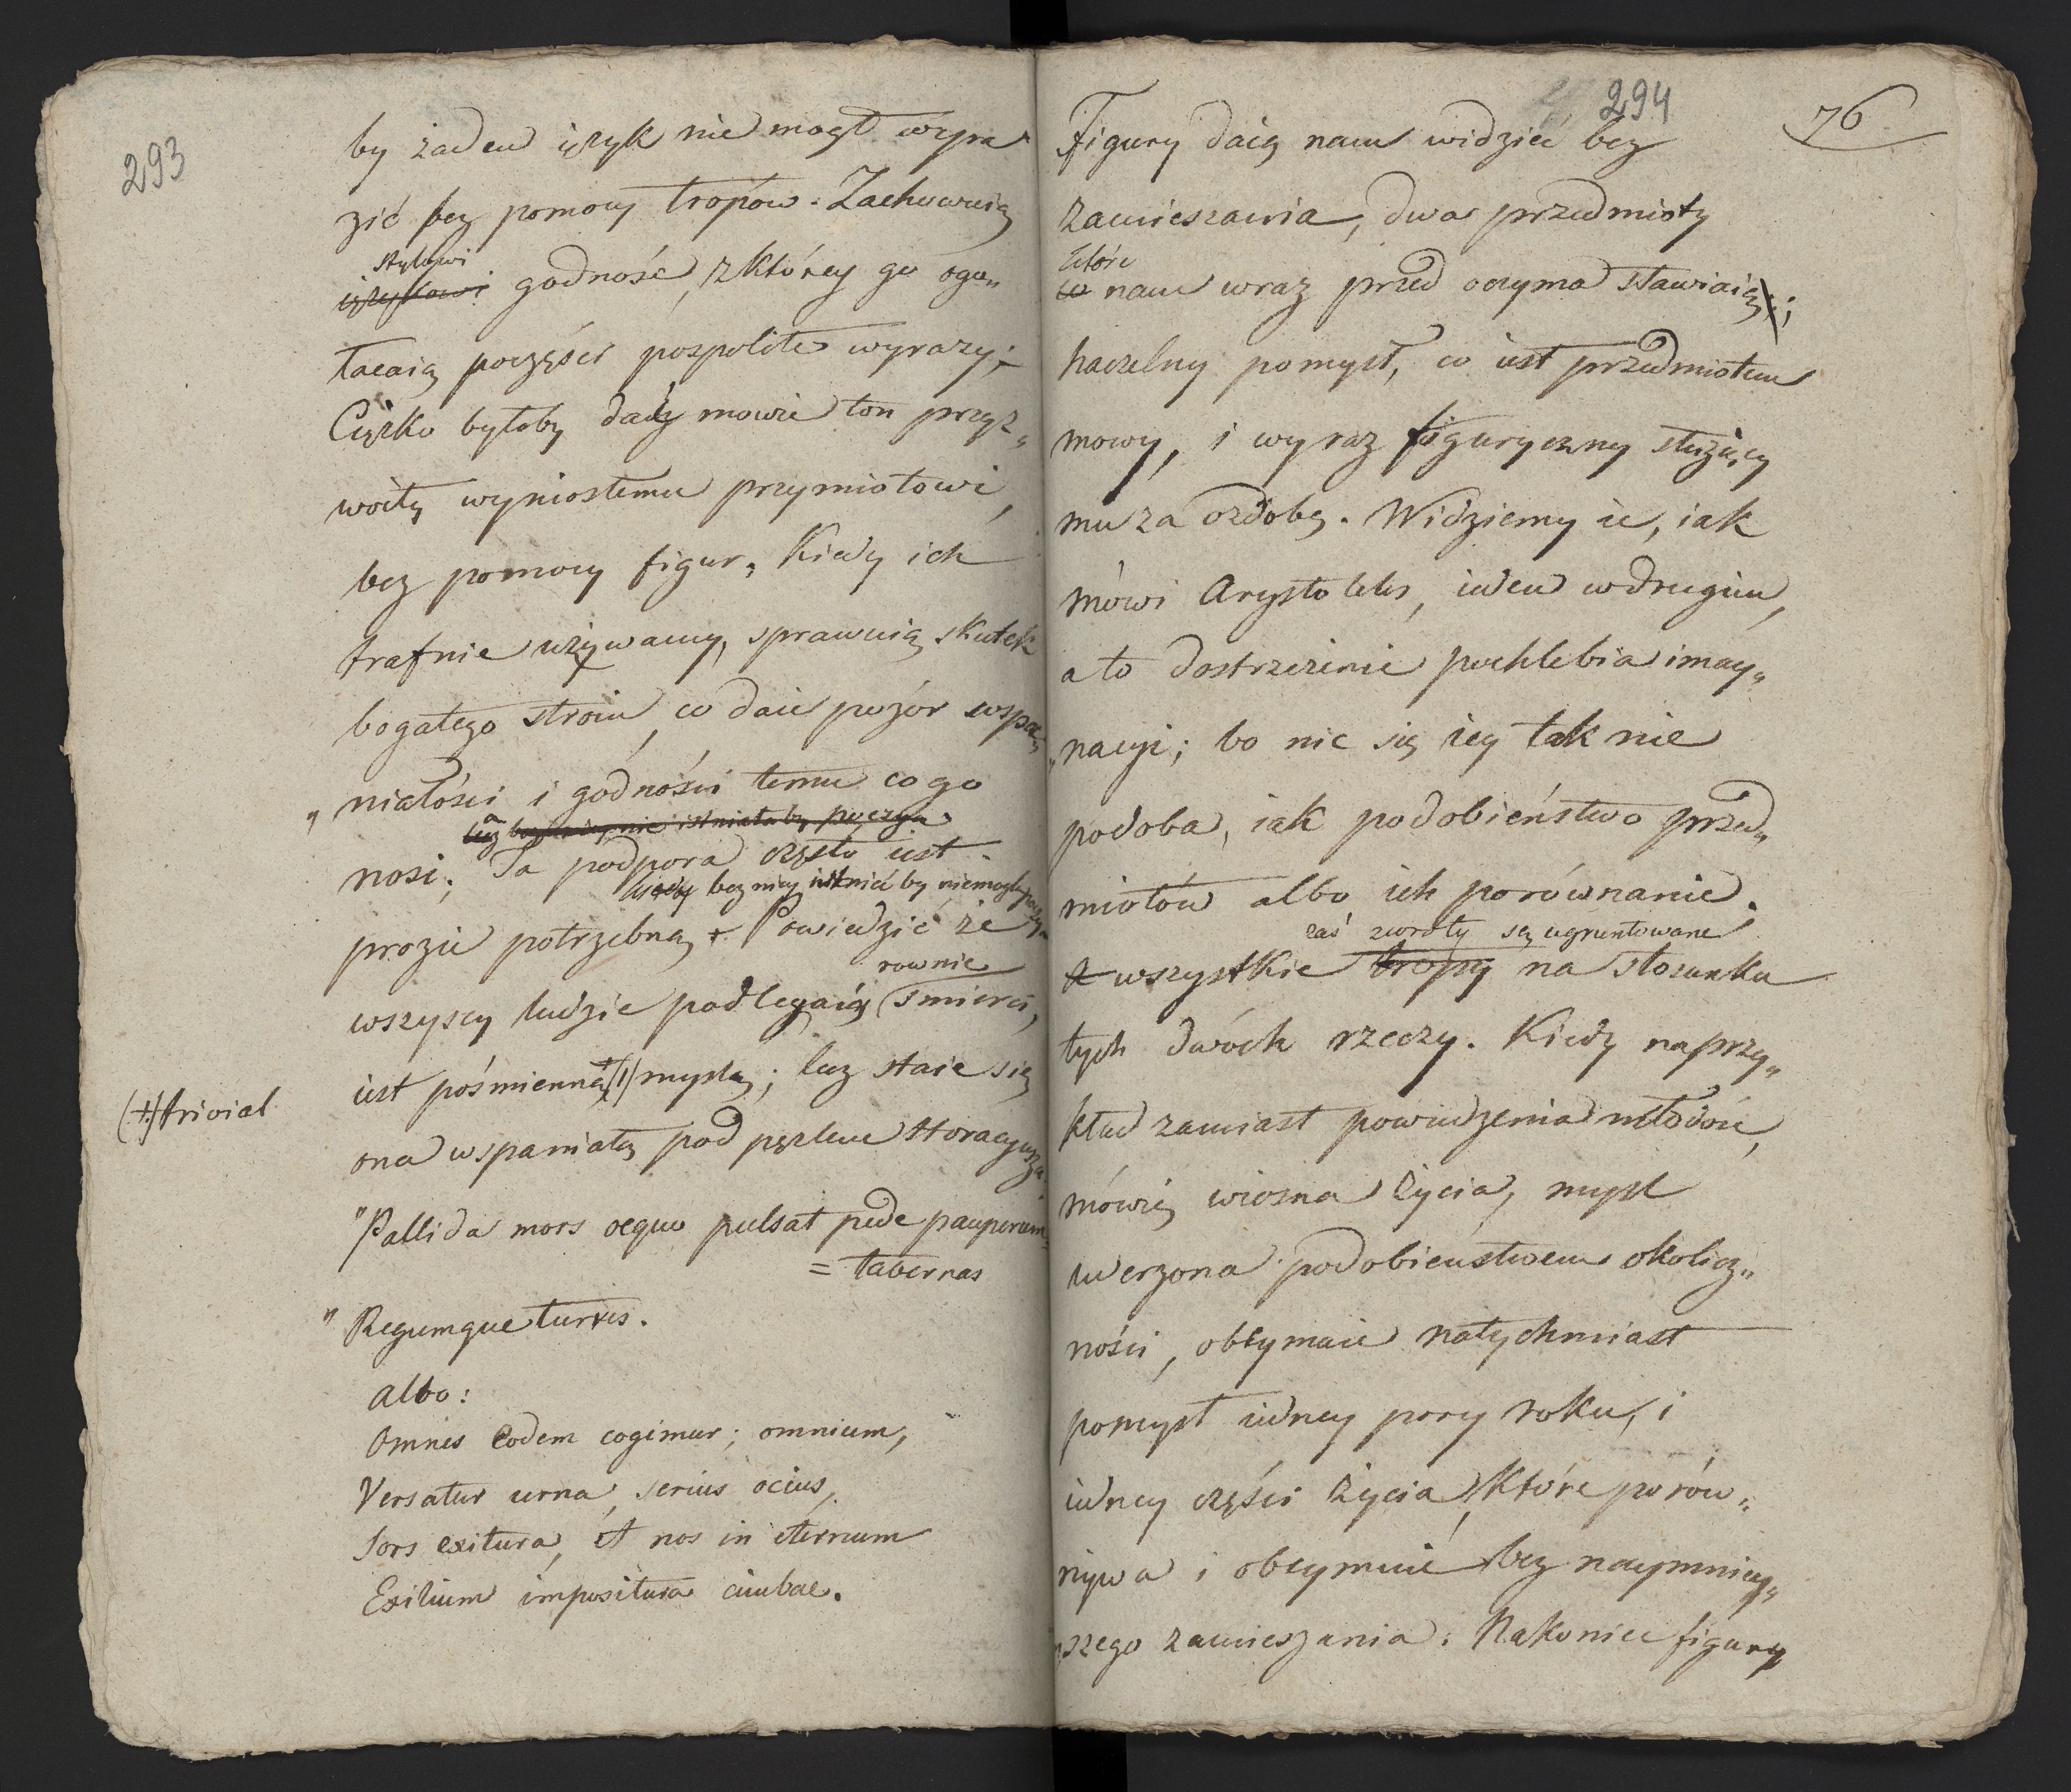 293
by żaden ięzyk nie mogł wyra
zić bez pomocy tropów. Zachowuią
stylowi
ięzykowi godność, z którey go ogo„
łacaią poczęści pospolite wyrazy;
Ciężko byłoby dać mowie ton przyz„
woity wyniosłemu przymiotowi,
bez pomocy figur, Kiedy ich
trafnie używamy, sprawuią skutek
bogatego stroiu, co daie pozór wspa„
„niałości i godności temu co go
nosi. Ta podpora często iest
bez niey istnieć by niemogła
prozie potrzebną + Powiedzieć że
rownie
wszyscy ludzie podlegaią śmierci,
iest pośmienną (+) myslą; lecz staie się
(+) trivial
ona wspaniałą pod pęzlem Horacyusza.
"Pallida mors oequo pulsat pede pauperum
= tabernas
" Regumque turres.
albo:
Omnes eodem cogimur; omnium,
Versatur urna, serius ocius,
Sors exitura, et nos in eternum
Exilium impositura cimbae.
294
76
Figury daią nam widzieć bez
zamieszania, dwa przedmioty
które
co nam wraz przed oczyma stawiaią;
naczelny pomysł, co iest przedmiotem
mowy, i wyraz figuryczny służący
mu za ozdobę. Widziemy ie, iak
mówi Arystoteles, ieden w drugim,
a to dostrzeżenie pochlebia imag„
„nacyi; bo nic się iey tak nie
podoba, iak podobieństwo przed„
miotów albo ich porównanie.
zaś zwroty są ugruntowane
a wszystkie tropy na stosunku
tych dwóch rzeczy. Kiedy naprzy„
kład zamiast powiedzenia młodość,
mówię wiosna życia, mysl
uderzona podobieństwem okolicz„
ności, otrymaie natychmiast
pomysł iedney pory roku, i
iedney części życia, które porów„
nywa i obeymuie bez naymniey„
szego zamieszania. Nakoniec figury